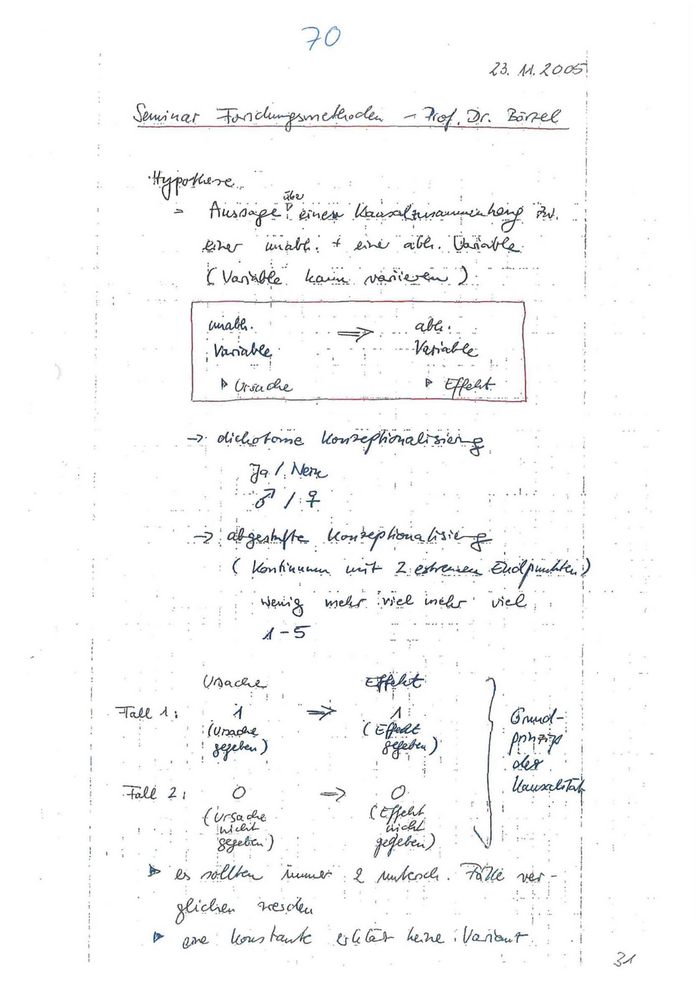 70
23. 11. 2005
Seminar Forschungsmethoden - Prof. Dr. Börzel
Hypothese
= Aussage über einen Kausalzusammenhang zw.
einer unabh. + eine abh. Variable
( Variable kann variieren )
unabh. ⇒ abh.
Variable Variable
▹ Ursache ▹ Effekt
→ dichotome Konzeptionalisierung
Ja / Nein
♂ / ♀
→ abgestufte Konzeptionalisierung
( Kontinuum mit 2 extremen Endpunkten )
wenig mehr viel mehr viel
1 - 5
Ursache Effekt
Fall 1: 1 ⇒ 1
(Ursache gegeben) (Effekt gegeben)
Fall 2: 0 ⇒ 0
(Ursache nicht gegeben) (Effekt nicht gegeben)
Grund-
prinzip
der
Kausalität
▹ es sollten immer 2 untersch. Fälle ver-
glichen werden
▹ eine Konstante erklärt keine Varianz
31